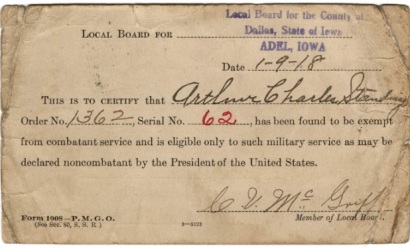 Local Board for the County of
Dallas, State of Iowa
ADEL, IOWA
LOCAL BOARD FOR
Date 1-9-18
THIS IS TO CERTIFY that Arthur Charles
Order No. 1362, Serial No. 62, has been found to be exempt
from combatant service and is eligible only to such military service as may be
declared noncombatant by the President of the United States.
C V. McGriff
Member of Local Board.
Form 1008—P.M.G.O.
(See Sec. 80, S. S. R.)